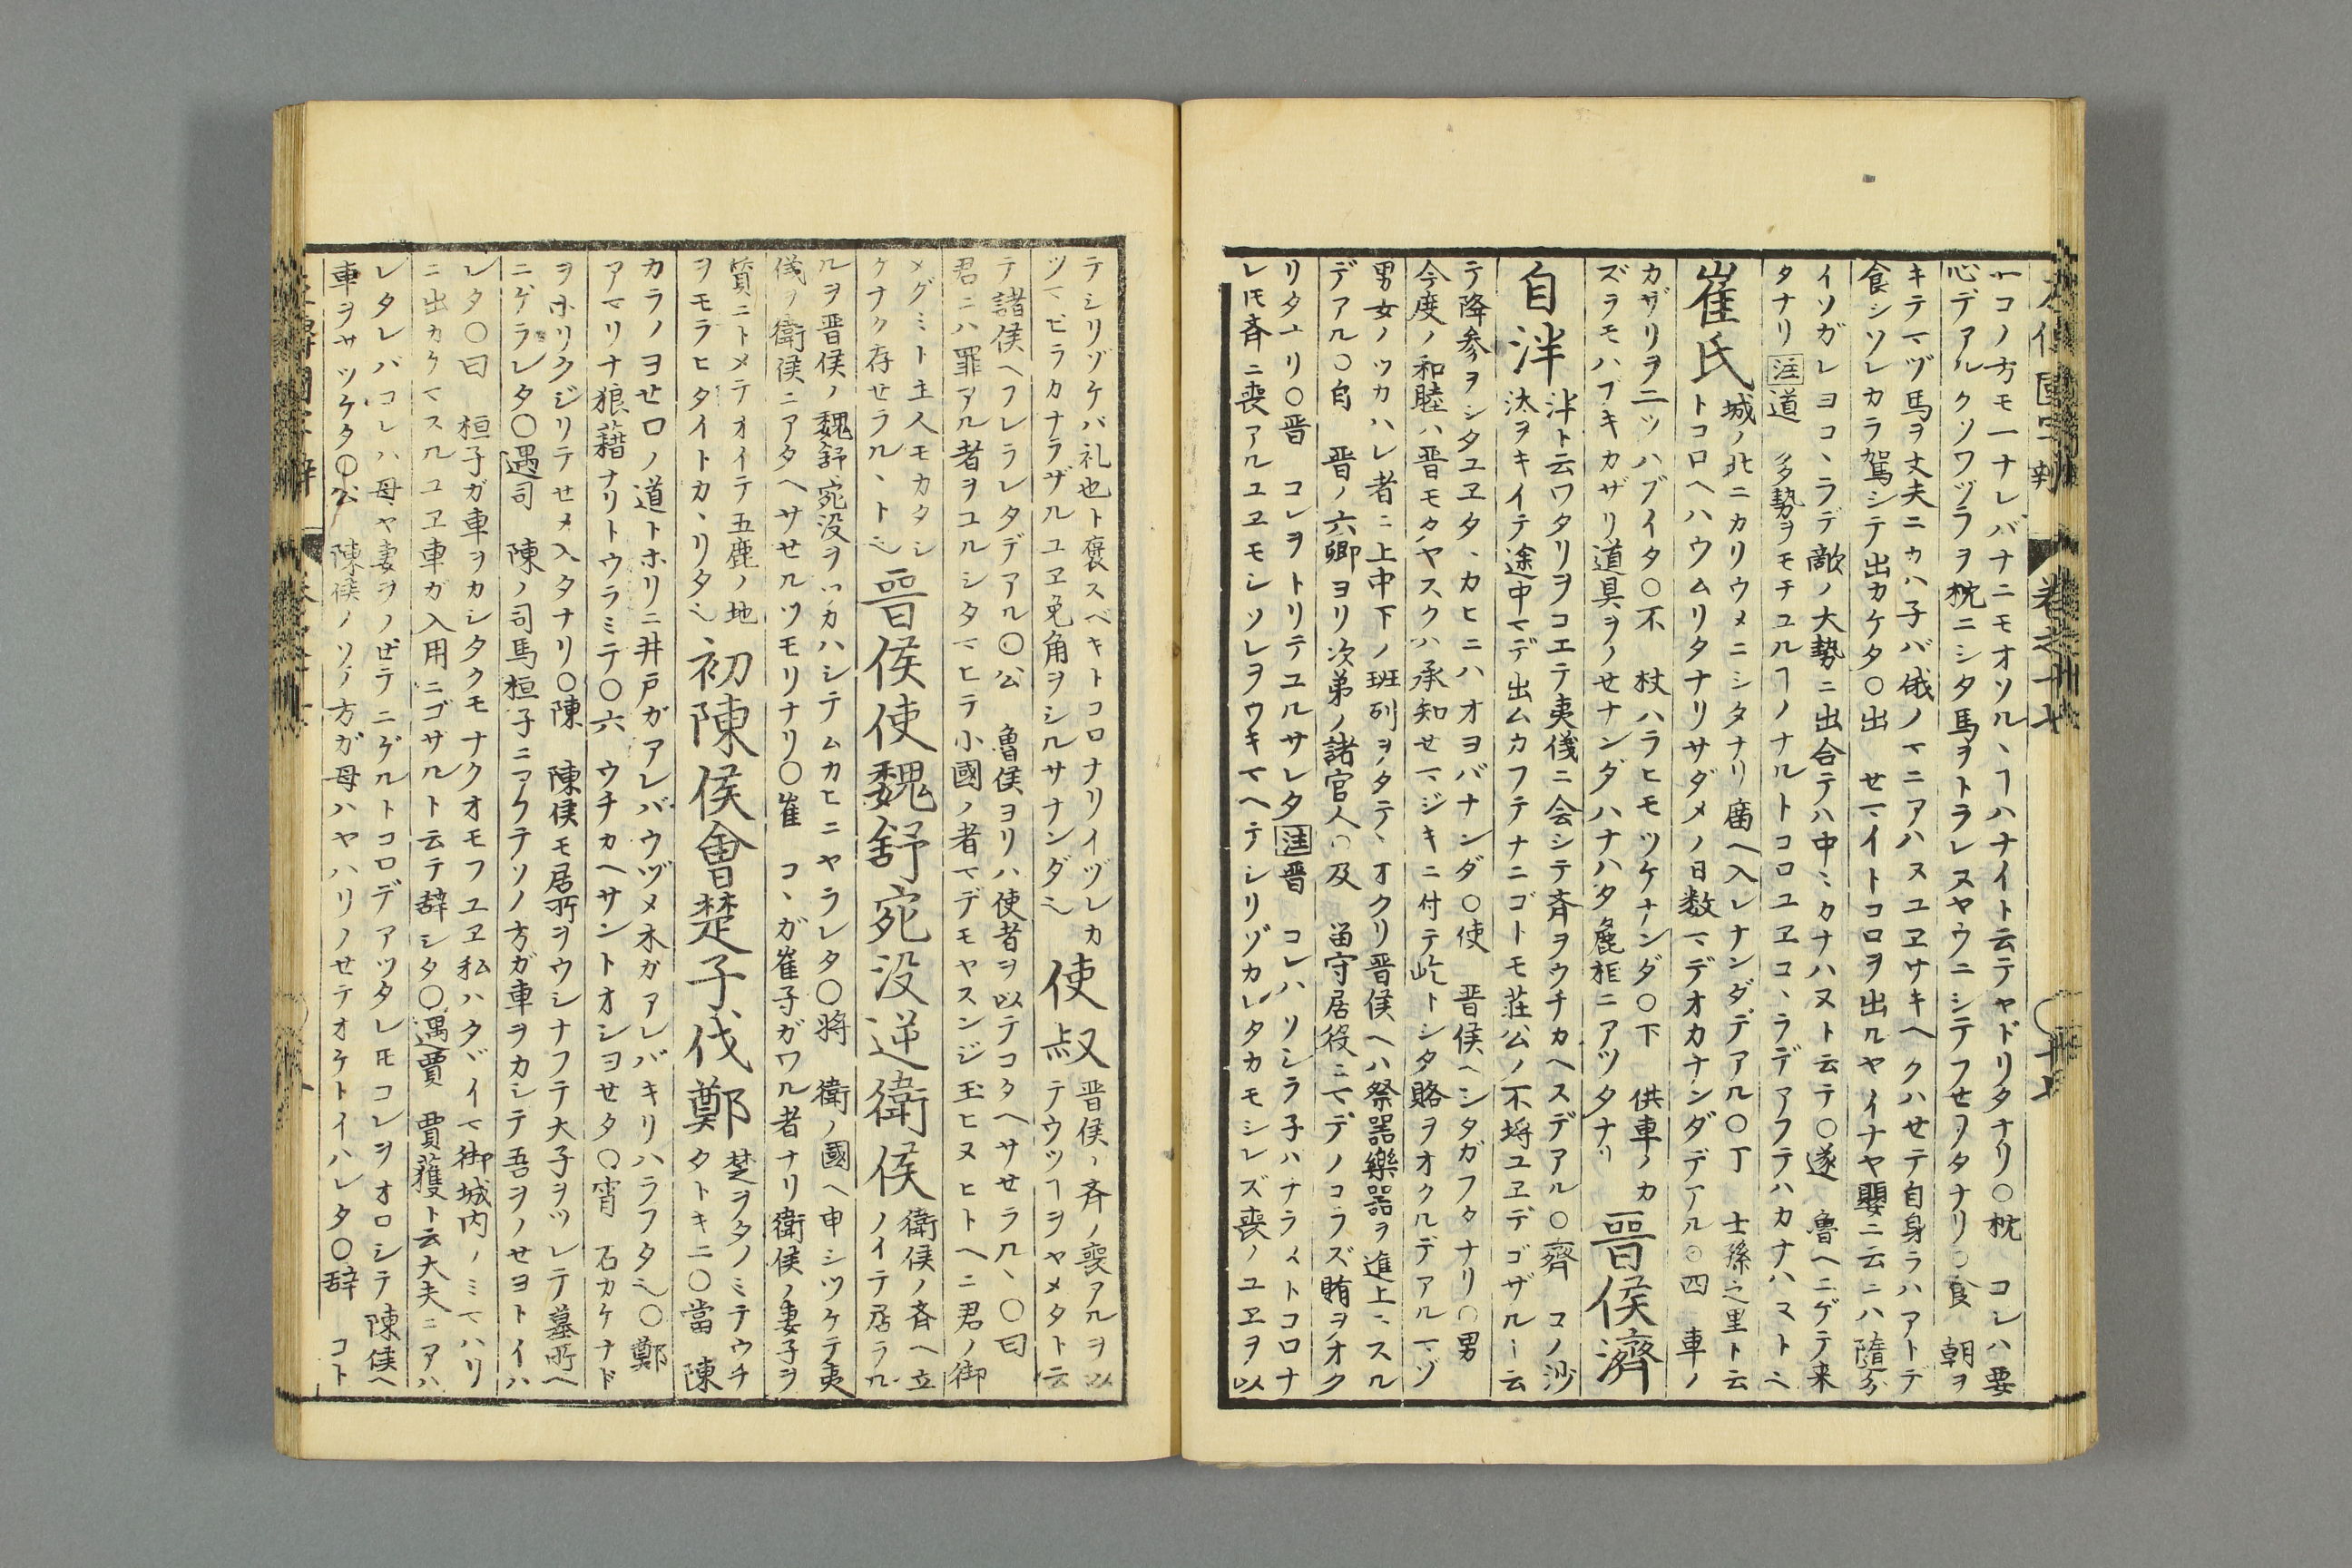 一コノ方モ一ナレバナニモオソルヽヿハナイト云テヤドリタナリ〇枕 コレハ要
心デアルクツワヅラヲ枕ニシタ馬ヲトラレヌヤウニシテフせㇼタナリ〇食 朝ヲ
キテマヅ馬ヲ丈夫ニカハ子バ俄ノマニアハヌユヱサキヘクハせテ自身ラハアトデ
食シソレカラ駕シテ出カケタ〇出 せマイトコロヲ出ルヤイナヤ嬰ニ云ニハ隨分
イソガレヨコヽラデ敵ノ大勢ニ出合テハ中〻カナハヌト云テ〇遂 魯ヘニゲテ来
タナリ注道 多勢ヲモチユルヿノナルトコロユヱコヽラデアフテハカナハヌト也
崔氏 城ノ北ニカリウメニシタナリ廟ヘ入レナンダデアル〇丁 士孫之里ト云
トコロヘハウムリタナリサダメノ日数マデオカナンダデアル〇四 車ノ
カザリヲ二ツハブイタ〇不 杖ハラヒモツケナンダ〇下 供車ノカ
ズラモハブキカザリ道具ヲノせナンダハナハタ麁柩ニアツタナリ
晋侯濟
自泮 泮ト云ワタリヲコエテ夷儀ニ会シテ斉ヲウチカヘスデアル〇齊 コノ沙
汰ヲキイテ途中マデ出ムカフテナニゴトモ荘公ノ不埒ユヱデゴザルト云
テ降参ヲシタユヱタヽカヒニハオヨバナンダ〇使 晋侯ヘシタガフタナリ〇男
今度ノ和睦ハ晋モタヤスクハ承知せマジキニ付テ屹トシタ賂ヲオクルデアルマヅ
男女ノツカハレ者ニ上中下ノ班列ヲタテヽオクリ晋侯ヘハ祭器樂器ヲ進上〻スル
デアル〇自 晋ノ六卿ヨリ次第ノ諸官人〇及 留守居役ニマデノコラズ賄ヲオク
リタナリ〇晋 コレヲトリテユルサレタ注晋 コレハソシラ子ハナラヌトコロナ
レ𪜈斉ニ喪アルユヱモシソレヲウキマヘテシリゾカレタカモシレズ喪ノユヱヲ以
テシリゾケバ礼也ト褒スベキトコロナリイヅレカ
ツマビラカナラザルユヱ兎角ヲシルサナンダ也
使叔 晋侯ハ斉ノ喪アルヲ以
テウツヿヲヤメタト云
テ諸侯ヘフレラレタデアル〇公 魯侯ヨリハ使者ヲ以テコタヘサせラルヽ〇曰
君ニハ罪アル者ヲユルシタマヒテ小國ノ者マデモヤスンジ玉ヒヌヒトヘニ君ノ御
メグミト主人モカタシ
ケナク存せラルヽト也
晉侯使魏舒宛没逆衛侯 衛侯ノ斉ヘ立
ノイテ居ラル
ルヲ晋侯ノ魏舒宛没ヲツカハシテムカヒニヤラレタ〇將 衛ノ國ヘ申シツケテ夷
儀ヲ衛侯ニアタヘサせルツモリナリ〇崔 コヽガ崔子ガワル者ナリ衛侯ノ妻子ヲ
質ニトメテオイテ五鹿ノ地
ヲモラヒタイトカヽリタ也
初陳侯會楚子伐鄭 楚ヲタノミテウチ
タトキニ〇當 陳
カラノヨせ口ノ道トホリニ井戸ガアレバウヅメ木ガアレバキリハラフタ也〇鄭
アマリナ狼藉ナリトウラミテ〇六 ウチカヘサントオシヨせタ〇宵 石カケナド
ヲホリクジリテせメ入タナリ〇陳 陳侯モ居所ヲウシナフテ大子ヲツレテ墓所ヘ
ニゲラレタ〇遇司 陳ノ司馬桓子ニアフテソノ方ガ車ヲカシテ吾ヲノせヨトイハ
レタ〇曰 桓子ガ車ヲカシタクモナクオモフユヱ私ハタヾイマ御城内ノミマハリ
ニ出カケマスルユヱ車ガ入用ニゴザルト云テ辞シタ〇遇賈 賈獲ト云大夫ニアハ
レタレバコレハ母ヤ妻ヲノせテニゲルトコロデアツタレ𪜈コレヲオロシテ陳侯ヘ
車ヲサツケタ〇公 陳侯ノソノ方ガ母ハヤハリノせテオケトイハレタ〇辞 コト